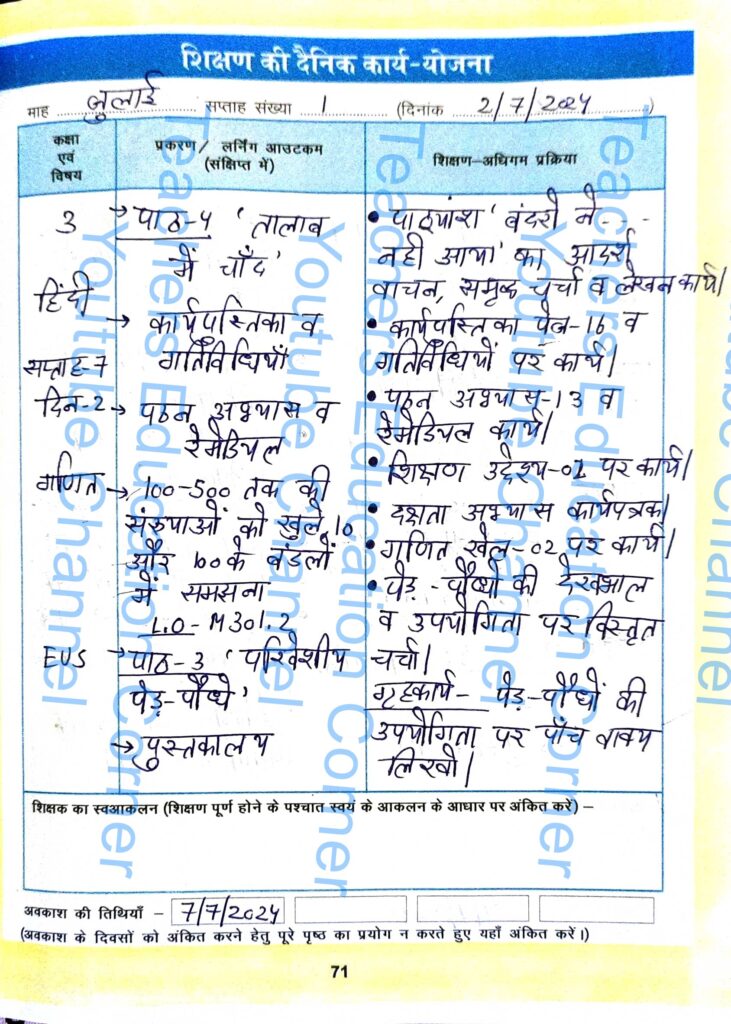 शिक्षण की दैनिक कार्य-योजना
माह जुलाई सप्ताह संख्या 1 (दिनांक 2/7/2024)
कक्षा
एवं
विषय
प्रकरण/ लर्निंग आउटकम
(संक्षिप्त में)
शिक्षण-अधिगम प्रक्रिया
3
हिंदी
सप्ताह-7
दिन-2
गणित
EVS
→ पाठ-4 'तालाब
में चाँद'
→ कार्यपुस्तिका व
गतिविधियाँ
→ पठन अभ्यास व
रेमेडियल
→ 100-500 तक की
संख्याओं को खुले, 10
और 100 के बंडलों
में समझना
L.O-M301.2
→ पाठ-3 'परिवेशीय
पेड़-पौधे'
→ पुस्तकालय
• पाठ्यांश 'बंदरों ने - - -
नही आया' का आदर्श
वाचन, समूह चर्चा व लेखन कार्य।
• कार्यपुस्तिका पेज-16 व
गतिविधियों पर कार्य।
• पठन अभ्यास-13 व
रेमेडियल कार्य।
• शिक्षण उद्देश्य-02 पर कार्य।
• दक्षता अभ्यास कार्यपत्रक।
• गणित खेल-02 पर कार्य।
• पेड़-पौधों की देखभाल
व उपयोगिता पर विस्तृत
चर्चा।
गृहकार्य- पेड़-पौधों की
उपयोगिता पर पाँच वाक्य
लिखो।
शिक्षक का स्वआकलन (शिक्षण पूर्ण होने के पश्चात स्वयं के आकलन के आधार पर अंकित करें) –
अवकाश की तिथियाँ – 7/7/2024
(अवकाश के दिवसों को अंकित करने हेतु पूरे पृष्ठ का प्रयोग न करते हुए यहाँ अंकित करें।)
71
Teachers Education Corner
Youtube Channel
Teachers Education Corner
Youtube Channel
Teachers Education Corner
Youtube Channel